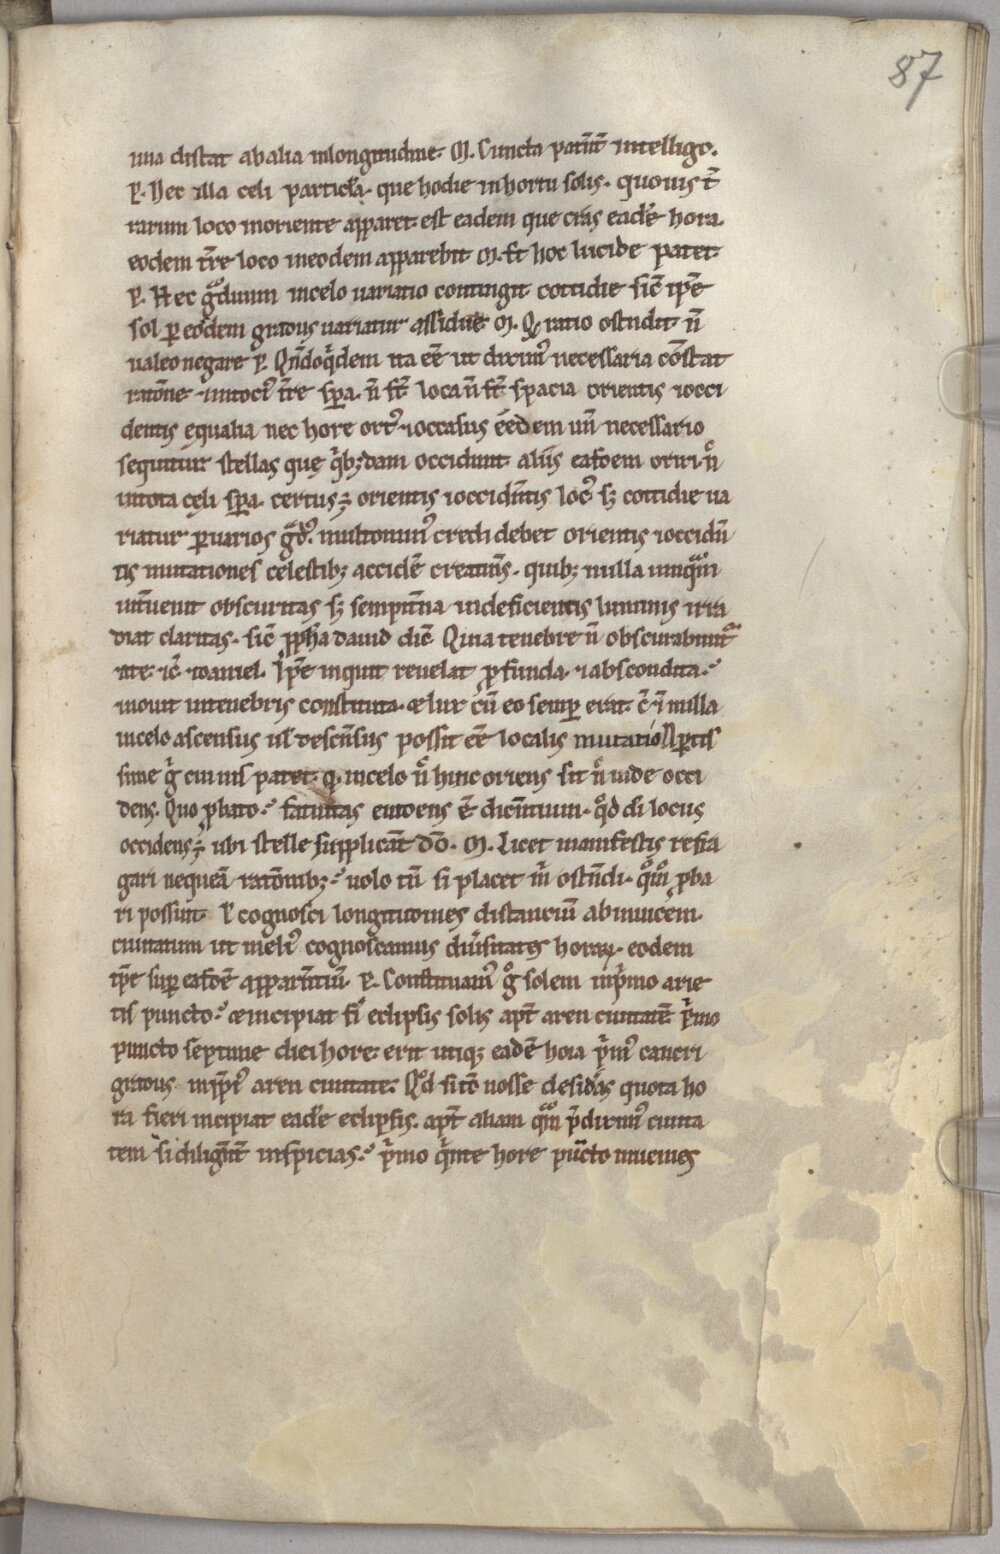 87
una distat ab alia inlongitudine. M. Cuncta patn̄t intelligo.
P. Nec illa celi particla. que hodie inhortu solis. quouis t̄
rarum loco inoriente apparet. est eadem que cras eadē hora
eodem t̄re loco ineodem apparebit. M. Et hoc lucide patet.
P. Hec gͣduum incelo uariatio contingit cottidie sic̄ ip̄e
sol p eosdem gradus uariatur assidue. M. Qđ ratio ostndit n̄
ualeo negare. P. Qn̄doqͥdem ita eē ut diximꝰ necessaria cōstat
ratōne. intociꝰ t̄re spa. n̄ st̄ loca n̄ st̄ spacia orientis ⁊occi
dentis equalia nec hore ortꝰ ⁊occasus eēdem un̄ necessario
sequitur stellas quę qͥbꝫdam occidunt. aliis easdem oriri. n̄
intota cęli spa. certus ÷ orientis ⁊occidn̄tis locꝰ sꝫ cottidie ua
riatur puarios gͣdꝰ. multominꝰ credi debet orientis ⁊occidn̄
tis mutationes celestibꝫ accidē creaturis. quibꝫ nulla unqͣm
intuenit obscuritas sꝫ sempitna indeficientis luminis irra
diat claritas. sic̄ ppha dauid dic̄ Quia tenebre n̄ obscurabunt̄ͣ
a te. ⁊c̄ daniel. Ip̄e inquit reuelat pfunda. ⁊abscondita.
⁊nouit intenebris constituta. & lux cū eo semp erat. nulla
incelo ascensus ul̄ descn̄sus possit eē localis mutatio. Aptis
sime gͥ cuiuis patet. q incelo n̄ hinc oriens sit n̄ inde occi
dens. Quo pbato. fatuitas euidens ē dicn̄tium. qͦd dn̄i locus
occidens ÷ ubi stelle supplicāt dō. M. Licet manifestis refra
gari nequeā ratōnibꝫ. uolo tn̄ si placet m̄ ostn̄di. qͦmͦ pba
ri possunt. P cognosci longitudines distanciū abinuicem
ciuitatum ut meliꝰ cognoscamus diuſitates horaꝝ. eodem
tp̄e sup easdē apparn̄tiū. P. Constituamꝰ gͦ solem inpͥmo arie
tis puncto. & incipiat fi͛ eclipsis solis apt̄ aren ciuitatē. pͥmo
puncto septime diei hore. erit utiqꝫ eadē hora pͥmꝰ cancri
gradus. aren ciuitate. Qđ si tē nosse desidas quota ho
ra fieri incipiat eadē eclipsis. apt̄ aliam qͣm pdiximꝰ ciuita
tem si dilign̄t̄ inspicias. pͥmo qͥnte hore pūcto inuenies